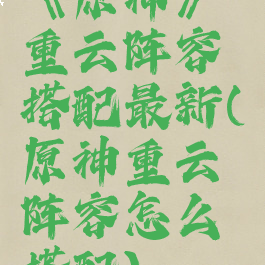 《原神》
重云阵容
搭配最新(
原神重云
阵容怎么
搭配)